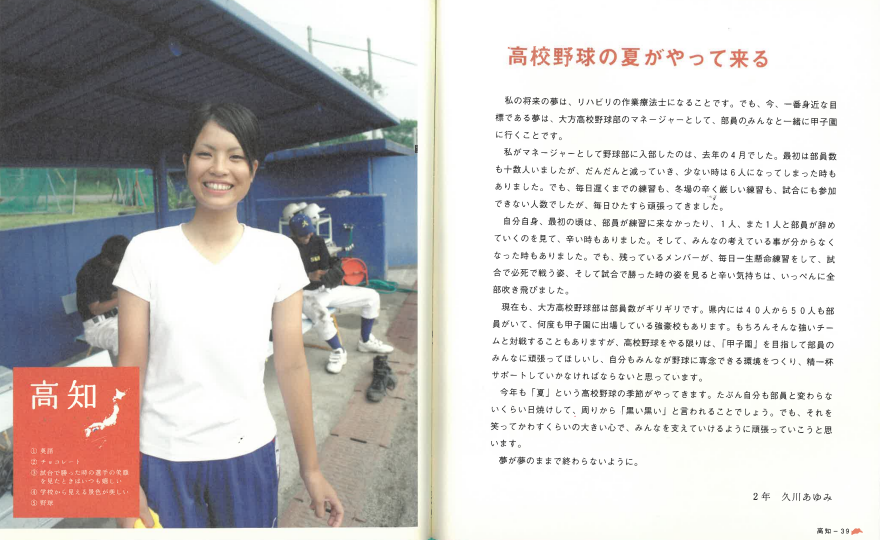 高知
① 英語
② チョコレート
③ 試合で勝った時の選手の笑顔
を見たときはいつも嬉しい
④ 学校から見える景色が美しい
⑤ 野球
高校野球の夏がやって来る
私の将来の夢は、リハビリの作業療法士になることです。でも、今、一番身近な目
標である夢は、大方高校野球部のマネージャーとして、部員のみんなと一緒に甲子園
に行くことです。
私がマネージャーとして野球部に入部したのは、去年の4月でした。最初は部員数
も十数人いましたが、だんだんと減っていき、少ない時は6人になってしまった時も
ありました。でも、毎日遅くまでの練習も、冬場の辛く厳しい練習も、試合にも参加
できない人数でしたが、毎日ひたすら頑張ってきました。
自分自身、最初の頃は、部員が練習に来なかったり、1人、また1人と部員が辞め
ていくのを見て、辛い時もありました。そして、みんなの考えている事が分からなく
なった時もありました。でも、残っているメンバーが、毎日一生懸命練習をして、試
合で必死で戦う姿、そして試合で勝った時の姿を見ると辛い気持ちは、いっぺんに全
部吹き飛びました。
現在も、大方高校野球部は部員数がギリギリです。県内には40人から50人も部
員がいて、何度も甲子園に出場している強豪校もあります。もちろんそんな強いチー
ムと対戦することもありますが、高校野球をやる限りは、「甲子園」を目指して部員の
みんなに頑張ってほしいし、自分もみんなが野球に専念できる環境をつくり、精一杯
サポートしていかなければならないと思っています。
今年も「夏」という高校野球の季節がやってきます。たぶん自分も部員と変わらな
いくらい日焼けして、周りから「黒い黒い」と言われることでしょう。でも、それを
笑ってかわすくらいの大きい心で、みんなを支えていけるように頑張っていこうと思
います。
夢が夢のままで終わらないように。
2年 久川あゆみ
高知－39